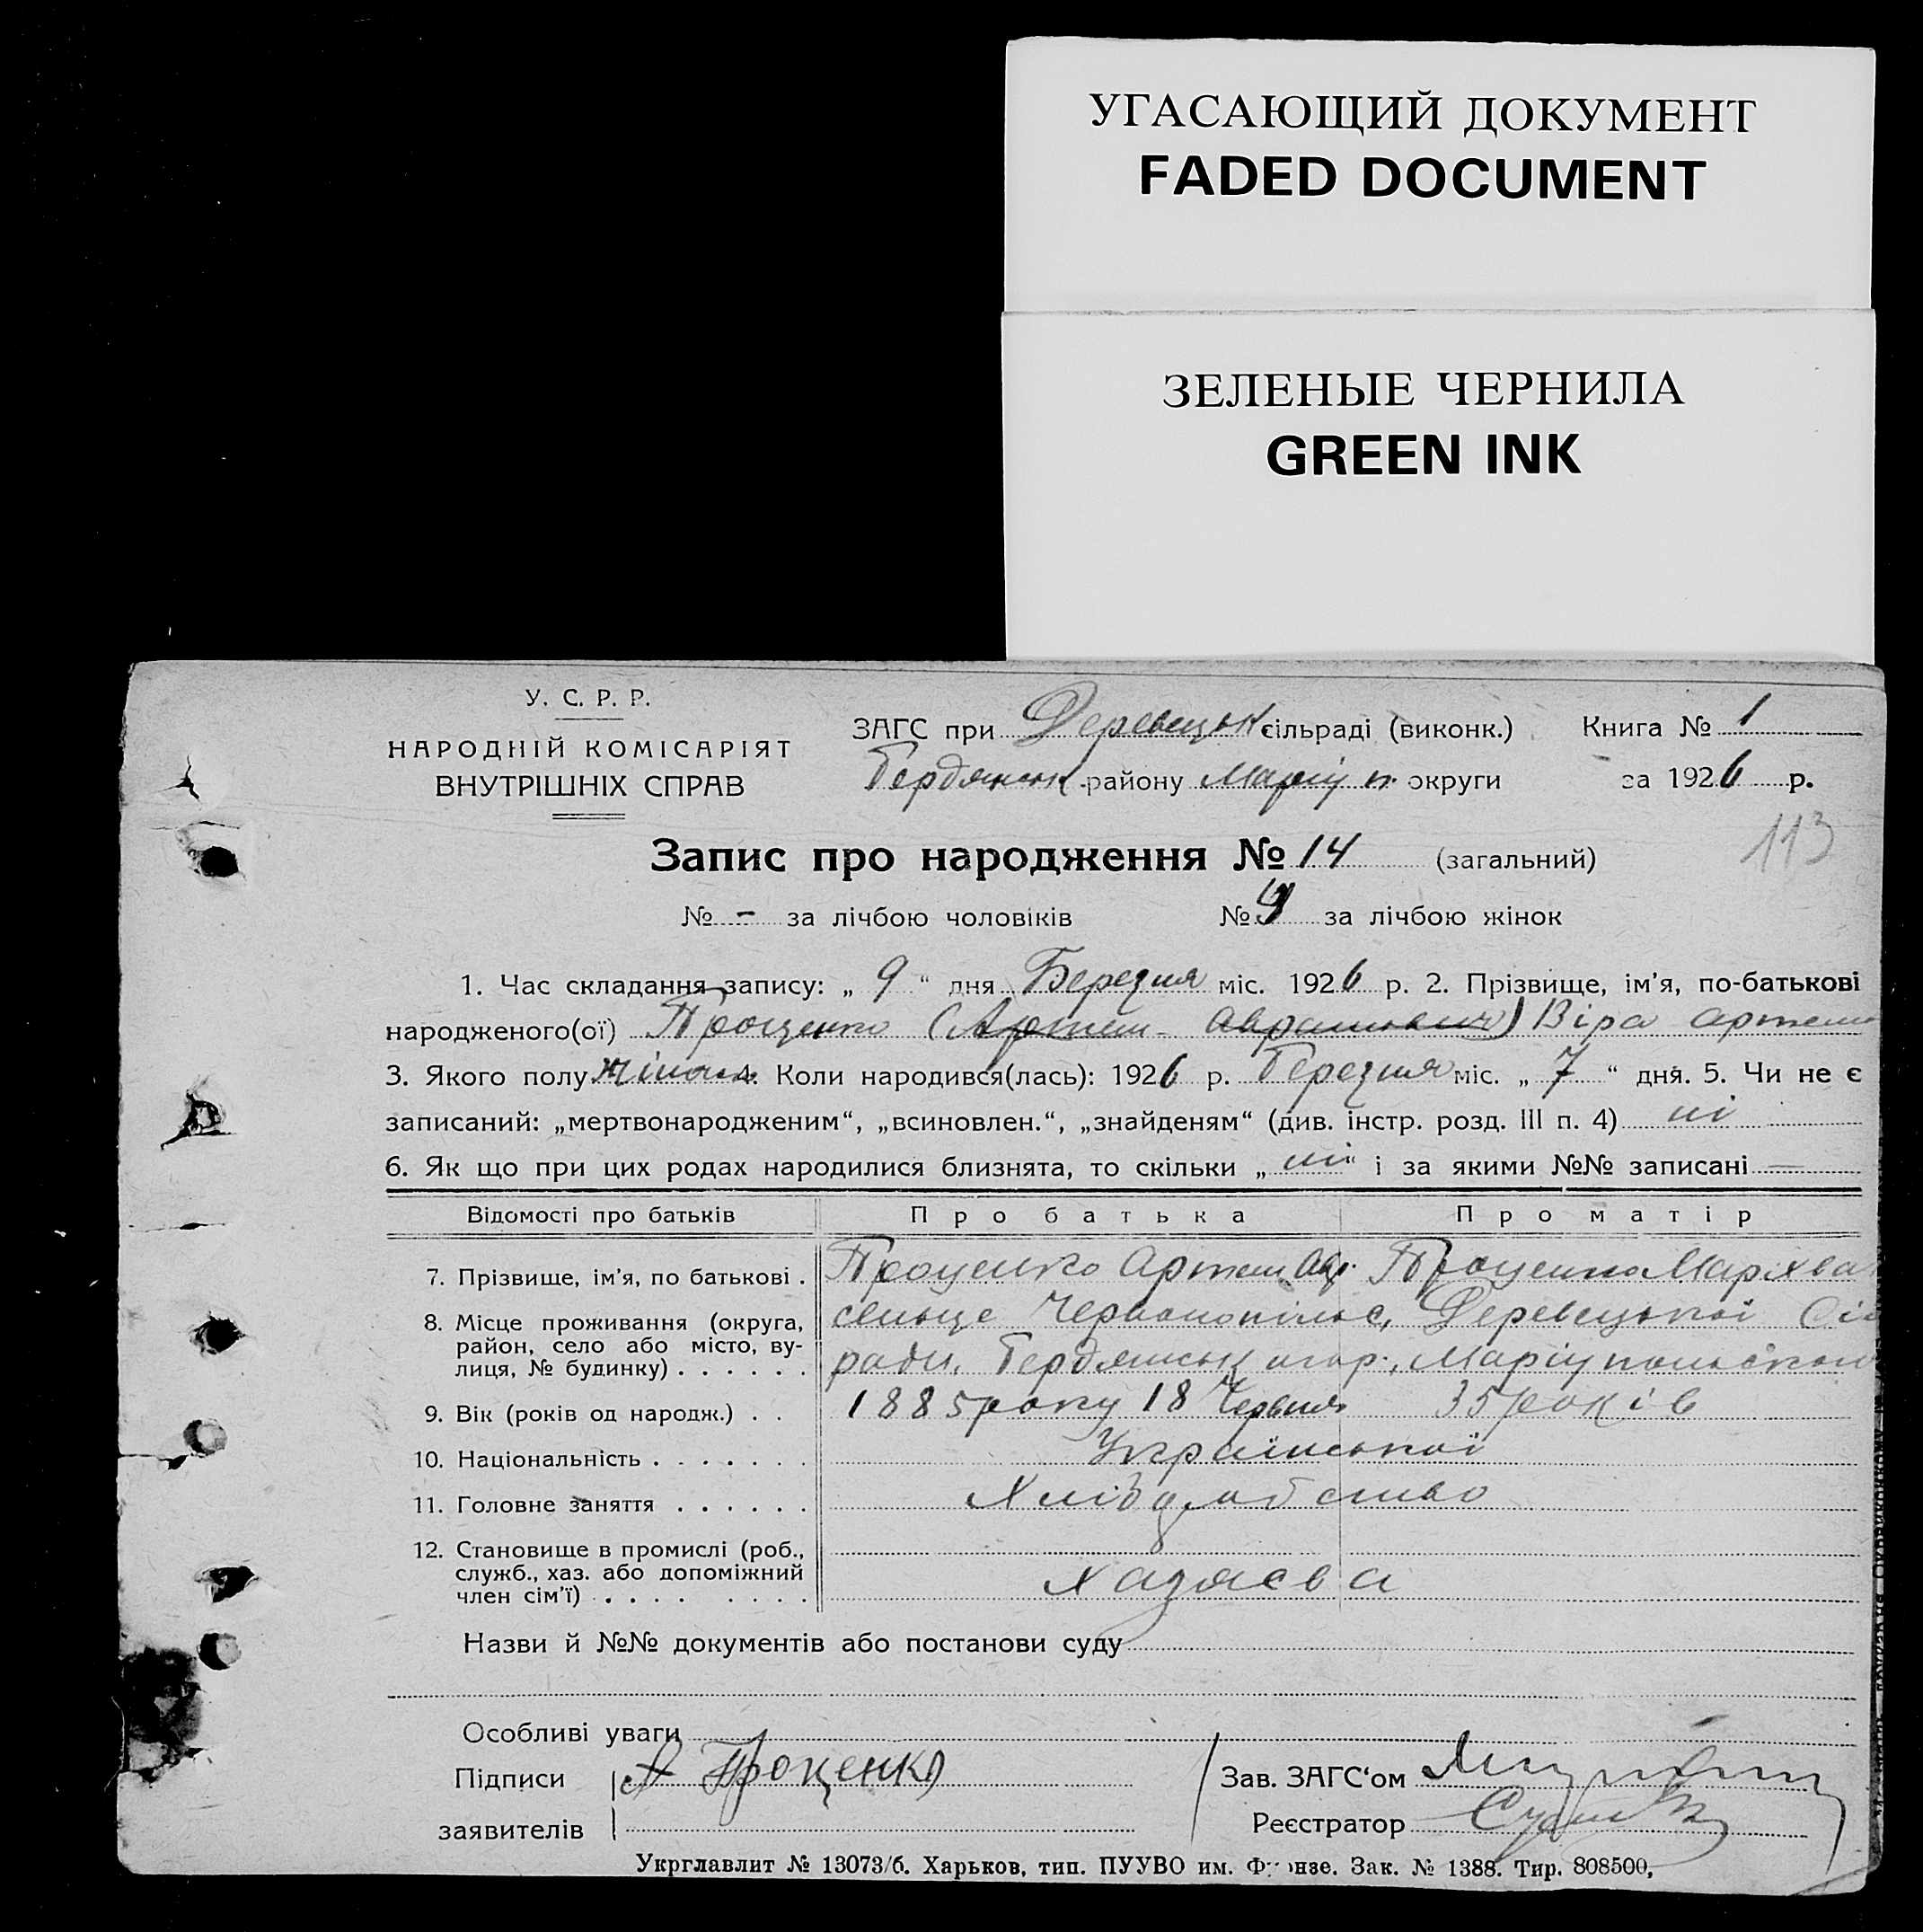 УГАСАЮЩИЙ ДОКУМЕНТ
FADED DOCUMENT
ЗЕЛЕНЫЕ ЧЕРНИЛА
GREEN INK
У. С. Р. Р.
НАРОДНІЙ КОМІСАРІЯТ
ВНУТРІШНІХ СПРАВ
ЗАГС при Деревецьк сільраді (виконк.) Книга № 1
Бердянськ району Маріуп. округи за 1926 р.
113
Запис про народження № 14 (загальний)
№ - за лічбою чоловіків № 9 за лічбою жінок
1. Час складання запису: „ 9 “ дня Березня міс. 1926 р. 2. Прізвище, ім'я, по-батькові
народженого(ої) Проценко (Артем Аврамович) Віра Артем
3. Якого полу жіночь 4. Коли народився(лась): 1926 р. Березня міс. „ 7 “ дня. 5. Чи не є
записаний: „мертвонародженим“, „всиновлен.“, „знайденям“ (див. інстр. розд. III п. 4) ні
6. Як що при цих родах народилися близнята, то скільки „ ні “ і за якими №№ записані —
Відомості про батьків Про батька Про матір
7. Прізвище, ім'я, по батькові . Проценко Артем Авр. Проценко Марія
8. Місце проживання (округа, район, село або місто, вулиця, № будинку) . . . . . . сельще Червонопільє, Деревецької Сіл
ради, Бердянськ Маріупольської
9. Вік (років од народж.) . . 1885 року 18 Червня 35 років
10. Національність . . . . . . . Української
11. Головне заняття . . . . . . Хліборобство
12. Становище в промислі (роб., служб., хаз. або допоміжний член сім'ї) . . . . . . . . Хазяєва
Назви й №№ документів або постанови суду
Особливі уваги
Підписи А Проценко Зав. ЗАГС‘ом
заявителів Реєстратор
Укрглавлит № 13073/б. Харьков, тип. ПУУВО им. Фрунзе. Зак. № 1388. Тир. 808500,